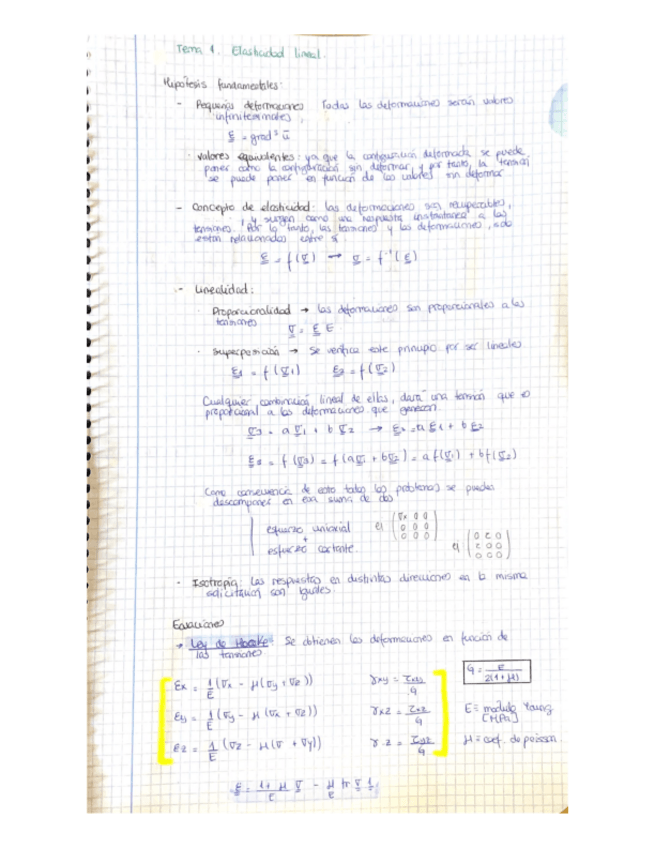 Tema 1. Elasticidad lineal.
Hipótesis fundamentales:
- Pequeñas deformaciones Todas las deformaciones serán valores
infinitesimales,
ε = grad ˢ ū
· Valores equivalentes: ya que la configuración deformada se puede
poner como la configuración sin deformar, y por tanto, la tensión
se puede poner en función de los valores sin deformar
- Concepto de elasticidad: las deformaciones son recuperables,
y surgen como una respuesta instantánea a las
tensiones. Por lo tanto, las tensiones y las deformaciones, solo
están relacionadas entre sí
ε = f(σ) → σ = f⁻¹(ε)
- Linealidad:
· Proporcionalidad → las deformaciones son proporcionales a las
tensiones
σ = ε E
· Superposición → Se verifica este principio por ser lineales
ε1 = f(σ1) ε2 = f(σ2)
Cualquier combinación lineal de ellas, dará una tensión que es
proporcional a las deformaciones que generan
σ3 = a σ1 + b σ2 → ε3 = a ε1 + b ε2
ε3 = f(σ3) = f(aσ1 + bσ2) = a f(σ1) + b f(σ2)
Como consecuencia de esto todos los problemas se pueden
descomponer en esa suma de dos
esfuerzo uniaxial
+
esfuerzo cortante.
ej (σx 0 0
0 0 0
0 0 0)
ej (0 τ 0
τ 0 0
0 0 0)
- Isotropía: Las respuestas en distintas direcciones en la misma
solicitación son iguales.
Ecuaciones
→ Ley de Hooke: Se obtienen las deformaciones en función de
las tensiones
εx = 1/E (σx - μ(σy + σz)) γxy = τxy/G
G = E/2(1+μ)
εy = 1/E (σy - μ(σx + σz)) γxz = τxz/G
E = modulo Young
[MPa]
εz = 1/E (σz - μ(σ + σy)) γ z = τyz/G
μ = coef. de poisson.
ε = 1+μ/E σ - μ/E tr σ 1